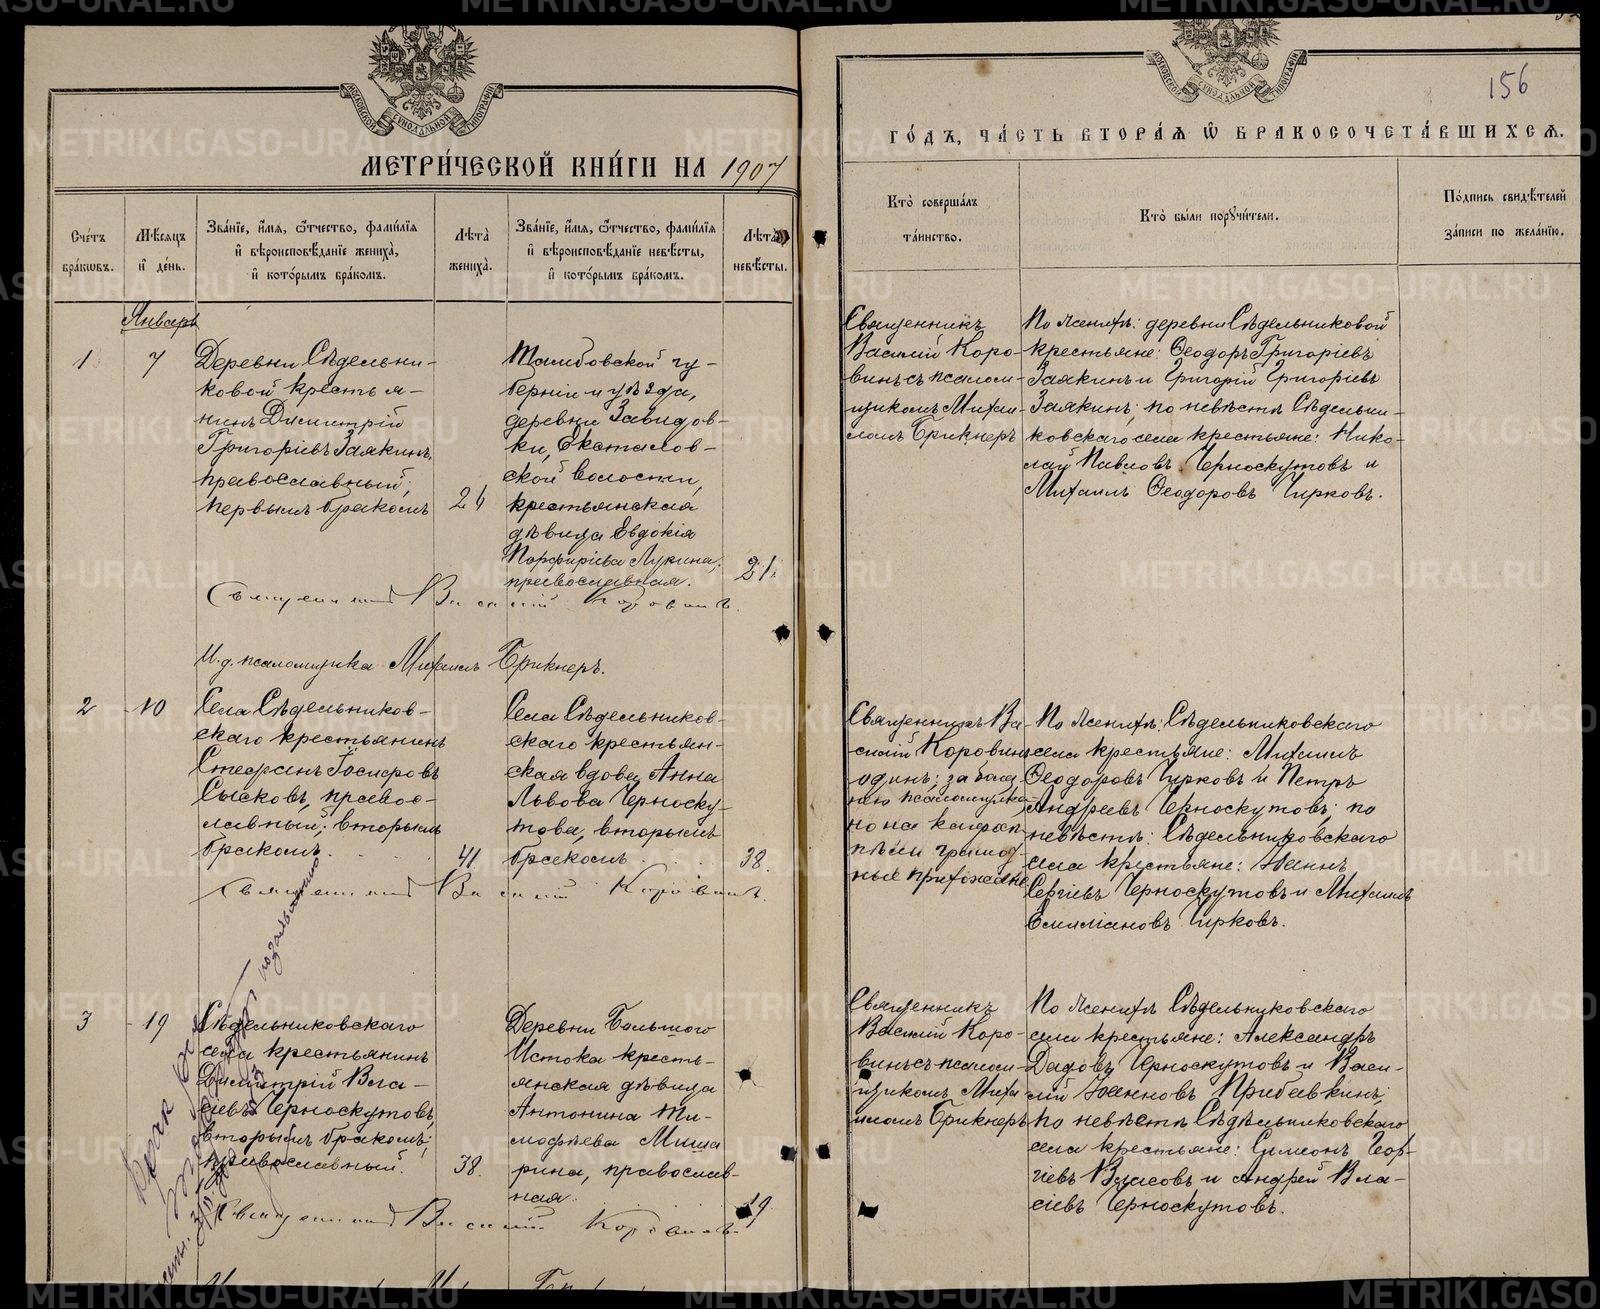 МЕТРИ́ЧЕСКОЙ КНИ́ГИ НА 1907
ГО́ДЪ, ЧА́СТЬ ВТОРА́Я Ѿ БРАКОСОЧЕТА́ВШИХСЯ.
156
МОСКОВСКОЙ СѴНОДАЛЬНОЙ ТИПОГРАФІИ
МОСКОВСКОЙ СѴНОДАЛЬНОЙ ТИПОГРАФІИ
Сче́тъ
бра́кѡвъ.
Мѣ́сяцъ
и҆ де́нь.
Зва́нїе, и҆́мя, ѻ҆́тчество, фами́лїя
и҆ вѣроисповѣ́данїе жениха̀,
и҆ кото́рымъ бра́комъ.
Лѣта̀
жениха̀.
Зва́нїе, и҆́мя, ѻ҆́тчество, фами́лїя
и҆ вѣроисповѣ́данїе невѣ́сты,
и҆ кото́рымъ бра́комъ.
Лѣта̀
невѣ́сты.
Кто̀ соверша́лъ
та́инство.
Кто̀ бы́ли порꙋчи́тели.
По́дпись свидѣ́телей
за́писи по жела́нїю.
Январь
1
7
Деревни Сѣдельни-
ковой крестья-
нинъ Димитрій
Григоріевъ Заякинъ,
православный;
первымъ бракомъ
24
Тамбовской гу-
берніи и уѣзда,
деревни Завидов-
ки,
ской волости,
крестьянская
дѣвица Евдокія
Порфиріева Лукина,
православная.
21.
Священникъ
Василій Коро-
винъ съ псалом-
щикомъ Михаи-
ломъ Брикнеръ
По женихѣ: деревни Сѣдельниковой
крестьяне: Ѳеодоръ Григоріевъ
Заякинъ и Григорій Григоріевъ
Заякинъ; по невѣстѣ Сѣдельни-
ковскаго села крестьяне: Нико-
лай Павловъ Черноскутовъ и
Михаилъ Ѳеодоровъ Чирковъ.
Священникъ Василій Коровинъ.
И.д. псаломщика Михаилъ Брикнеръ.
2
10
Села Сѣдельников-
скаго крестьянинъ
Стефанъ Іосифовъ
Сысковъ, правос-
лавный; вторымъ
бракомъ.
41.
Села Сѣдельников-
скаго крестьян-
ская вдова Анна
Львова Черноску-
това, вторымъ
бракомъ
38.
Священникъ Ва-
силій Коровинъ
одинъ; за болѣ
нію псаломщика
но на
пѣли грамот
ные прихожане
По женихѣ: Сѣдельниковскаго
села крестьяне: Михаилъ
Ѳеодоровъ Чирковъ и Петръ
Андреевъ Черноскутовъ; по
невѣстѣ: Сѣдельниковскаго
села крестьяне: Іоаннъ
Сергіевъ Черноскутовъ и Михаилъ
Емиліановъ Чирковъ.
Священникъ Василій Коровинъ.
3
19
Сѣдельниковскаго
села крестьянинъ
Димитрій Вла-
сіевъ Черноскутовъ,
вторымъ бракомъ;
православный.
38.
Деревни Большого
Истока кресть-
янская дѣвица
Антонина Ти-
мофѣева Миша
рина, православ-
ная
19.
Священникъ
Василій Коро-
винъ съ псалом-
щикомъ Миха
иломъ Брикнеръ
По женихѣ Сѣдельниковскаго
села крестьяне: Александръ
Дадовъ Черноскутовъ и Васи-
лій Іоанновъ Прибавкинъ;
по невѣстѣ Сѣдѣльниковскаго
села крестьяне: Симеонъ Геор-
гіевъ Власовъ и Андрей Вла-
сіевъ Черноскутовъ.
Священникъ Василій Коровинъ.
METRIKI.GASO-URAL.RU